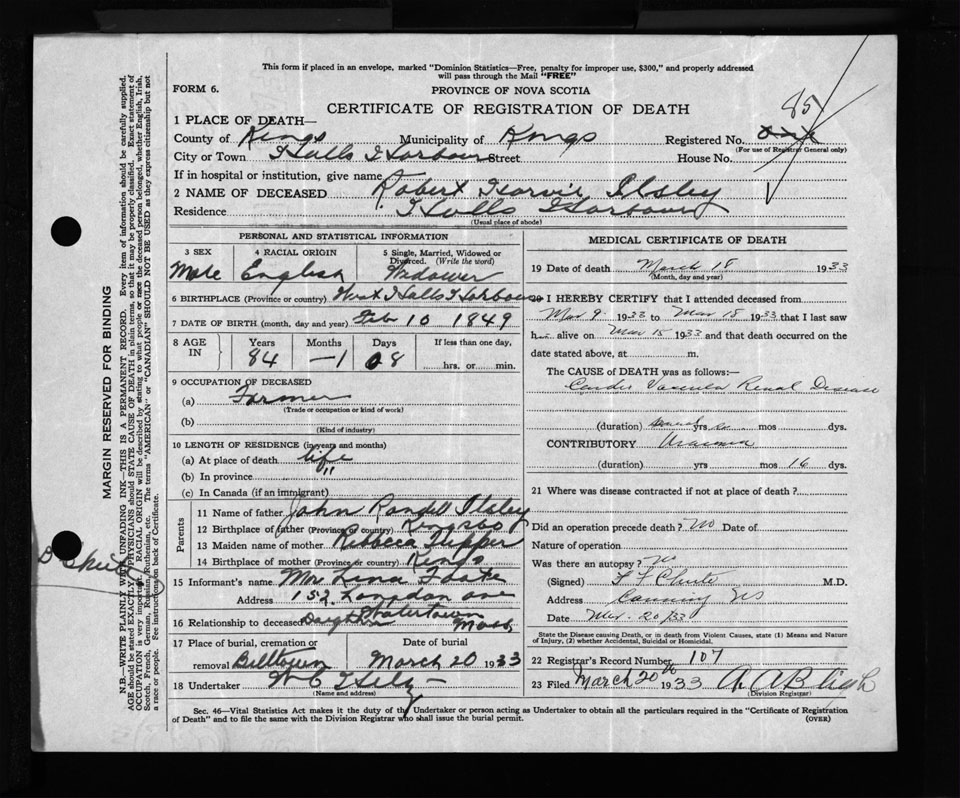 This form if placed in an envelope, marked "Dominion Statistics—Free, penalty for improper use, $300," and properly addressed
will pass through the Mail "FREE"
FORM 6.
PROVINCE OF NOVA SCOTIA
CERTIFICATE OF REGISTRATION OF DEATH
85
1 PLACE OF DEATH—
County of Kings Municipality of Kings Registered No.
(For use of Registrar General only)
City or Town Halls Harbour Street House No.
If in hospital or institution, give name
2 NAME OF DECEASED Robert Harvie Ilsley
Residence Halls Harbour
(Usual place of abode)
PERSONAL AND STATISTICAL INFORMATION
3 SEX 4 RACIAL ORIGIN 5 Single, Married, Widowed or Divorced. (Write the word)
Male English Widower
6 BIRTHPLACE (Province or country) West Halls Harbour
7 DATE OF BIRTH (month, day and year) Feb 10 1849
8 AGE IN Years Months Days If less than one day,
84 —1 08 hrs. or min.
9 OCCUPATION OF DECEASED
(a) Farmer
(Trade or occupation or kind of work)
(b)
(Kind of industry)
10 LENGTH OF RESIDENCE (in years and months)
(a) At place of death life
(b) In province "
(c) In Canada (if an immigrant)
Parents
11 Name of father John Randel Ilsley
12 Birthplace of father (Province or country) Kings Co
13 Maiden name of mother Rebecca Tupper
14 Birthplace of mother (Province or country) Kings
15 Informant's name Mrs Lena
Address 152 Langdon ave
Watertown
16 Relationship to deceased Daughter Mass
17 Place of burial, cremation or removal Date of burial
Billtown March 20 1933
18 Undertaker W C
(Name and address)
MEDICAL CERTIFICATE OF DEATH
19 Date of death March 18 1933
(Month, day and year)
20 I HEREBY CERTIFY that I attended deceased from
Mar 9 1933 to Mar 18 1933 that I last saw
h alive on Mar 15 1933 and that death occurred on the
date stated above, at m.
The CAUSE of DEATH was as follows:—
Cardio Vascular Renal Disease
(duration) several yrs mos dys.
CONTRIBUTORY Uraemia
(duration) yrs mos 16 dys.
21 Where was disease contracted if not at place of death?
Did an operation precede death? No Date of
Nature of operation
Was there an autopsy? No
(Signed) F F Chute M.D.
Address Canning NS
Date Mar. 20/33
State the Disease causing Death, or in death from Violent Causes, state (1) Means and Nature
of Injury, (2) whether Accidental, Suicidal or Homicidal.
22 Registrar's Record Number 107
23 Filed March 20th 1933 A. A. Bligh
(Division Registrar)
Sec. 46—Vital Statistics Act makes it the duty of the Undertaker or person acting as Undertaker to obtain all the particulars required in the "Certificate of Registration
of Death" and to file the same with the Division Registrar who shall issue the burial permit.
(OVER)
MARGIN RESERVED FOR BINDING
N.B.—WRITE PLAINLY WITH UNFADING INK—THIS IS A PERMANENT RECORD. Every item of information should be carefully supplied.
AGE should be stated EXACTLY. PHYSICIANS should STATE CAUSE OF DEATH in plain terms, so that it may be properly classified. Exact statement of
OCCUPATION is very important. RACIAL ORIGIN will be described by stating to what people or race the deceased person belonged, whether English, Irish,
Scotch, French, German, Russian, Ruthenian, etc. The terms "AMERICAN" or "CANADIAN" SHOULD NOT BE USED as they express citizenship but not
a race or people. See instructions on back of Certificate.